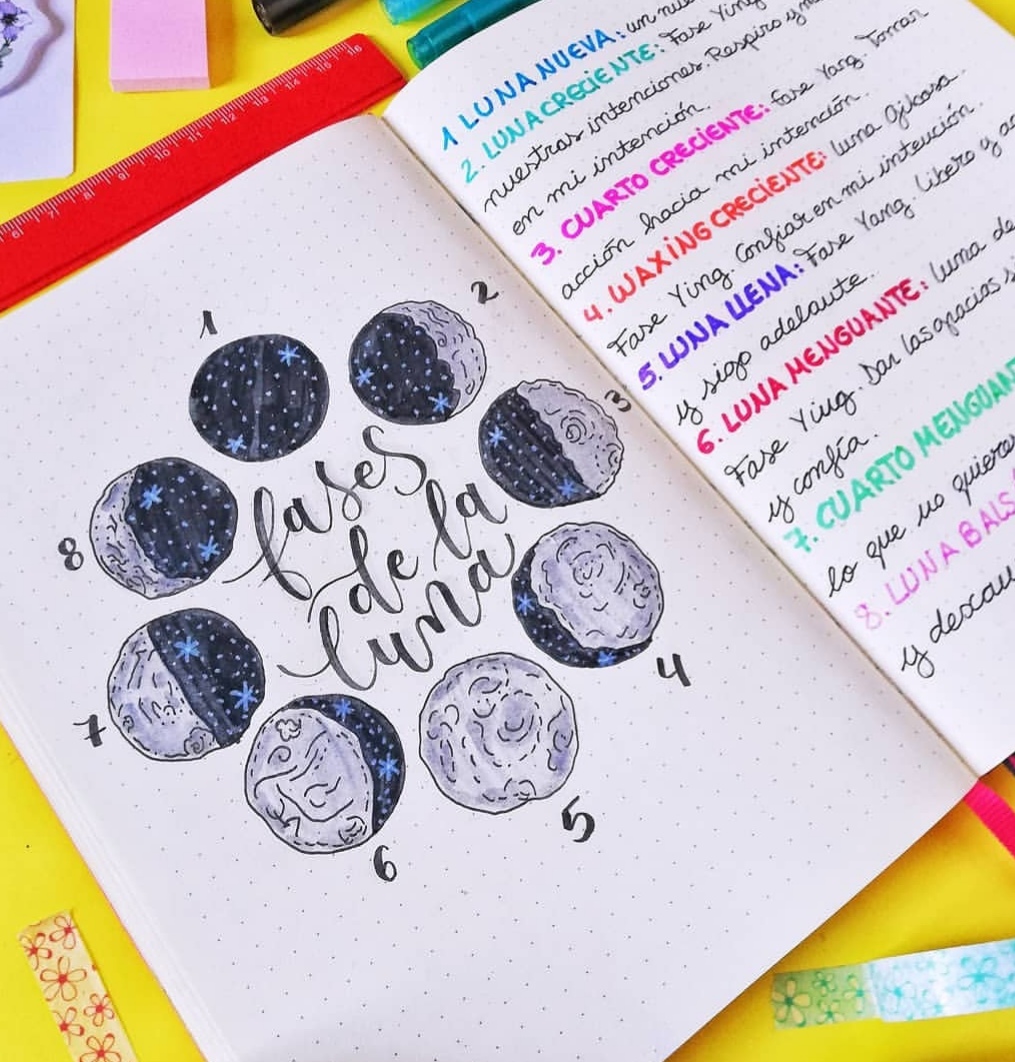 1
2
3
4
5
6
7
8
fases
de la
luna
1 LUNA NUEVA: un
2. LUNA CRECIENTE: Fase Ying
nuestras intenciones. Respiro y
en mi intención.
3. CUARTO CRECIENTE: fase Yang. Tomar
acción hacia mi intención.
4. WAXING CRECIENTE: luna Gibosa.
Fase Ying Confiar en mi intención.
5. LUNA LLENA: Fase Yang. Libero y
y sigo adelante.
6. LUNA MENGUANTE: luna de
Fase Ying. Dar las gracias
y confía.
7. CUARTO MENGUANT
lo que no quieres
8. LUNA BALS
y descan